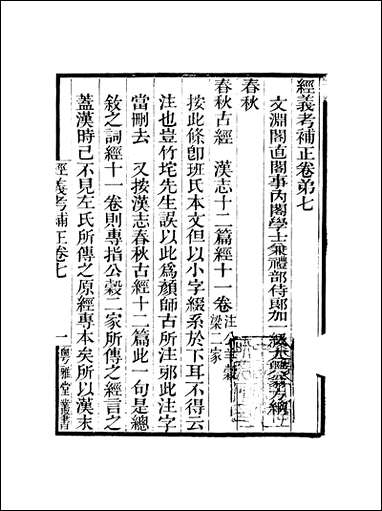 經義考補正卷第七
文淵閣直閣事內閣學士兼禮部侍郎加一級大興翁方綱
春秋
春秋古經　漢志十二篇經十一卷注公羊穀梁二家
按此條卽班氏本文但以小字綴系於下耳不得云
注也豈竹垞先生誤以此為顏師古所注邪此注字
當刪去　又按漢志春秋古經十二篇此一句是總
敘之詞經十一卷則專指公穀二家所傳之經言之
蓋漢時已不見左氏所傳之原經專本矣所以漢末
經義考補正卷七
一
粵雅堂叢書